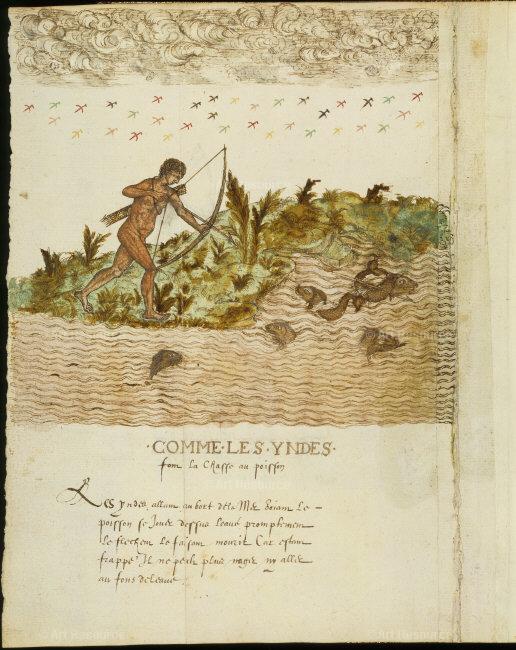 ·COMME·LES·YNDES·
font la Chasse au poisson
Les yndes allant au bort de la Mer voiant Le –
poisson se Jouer dessus leaue promptement
le flechent le faisant mourir Car estant
frappé Il ne peult plus nager ny aller
au fons deleaue